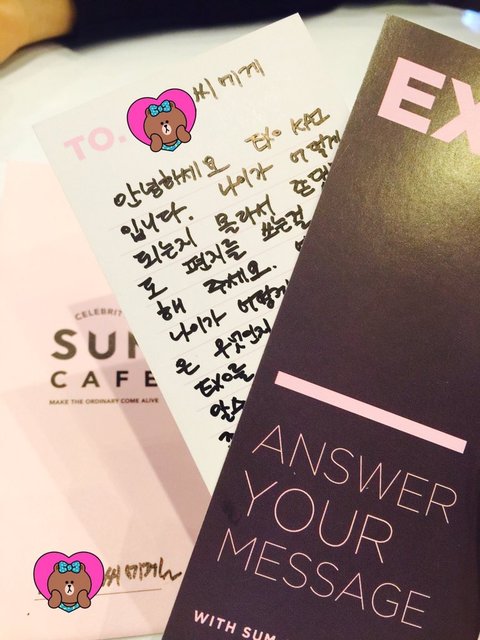 TO. 씨에게
안녕하세요 EXO 시우민
입니다. 나이가 어떻게
되는지 몰라서
도 편지를 쓰는걸
해 주세요.
나이가 어떻게
은 무엇인지
EXO를
알수
CELEBRIT
SUM
CAFE
MAKE THE ORDINARY COME ALIVE
씨에게
EX
ANSWER
YOUR
MESSAGE
WITH SUM